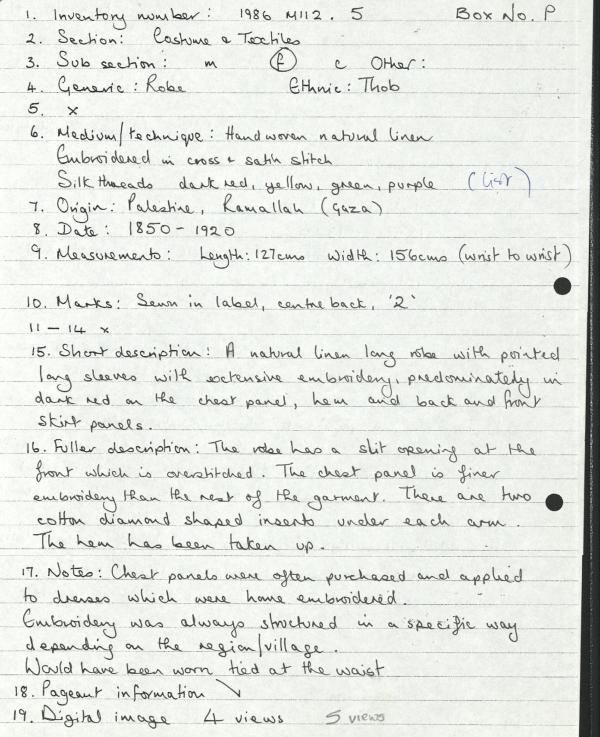 1. Inventory number: 1986 M112.5 Box No. P
2. Section: Costume & Textiles
3. Sub section: m f c Other:
4. Generic: Robe Ethnic: Thob
5. x
6. Medium/technique: Handwoven natural linen
Embroidered in cross + satin stitch
Silk threads dark red, yellow, green, purple (list)
7. Origin: Palestine, Ramallah (Gaza)
8. Date: 1850-1920
9. Measurements: Length: 127cms Width: 156cms (wrist to wrist)
10. Marks: Sewn in label, centre back, '2'
11 - 14 x
15. Short description: A natural linen long robe with pointed
long sleeves with extensive embroidery, predominately in
dark red on the chest panel, hem and back and front
skirt panels.
16. Fuller description: The robe has a slit opening at the
front which is overstitched. The chest panel is finer
embroidery than the rest of the garment. There are two
cotton diamond shaped inserts under each arm.
The hem has been taken up.
17. Notes: Chest panels were often purchased and applied
to dresses which were home embroidered.
Embroidery was always structured in a specific way
depending on the region/village.
Would have been worn tied at the waist
18. Pageant information \
19. Digital image 4 views 5 views